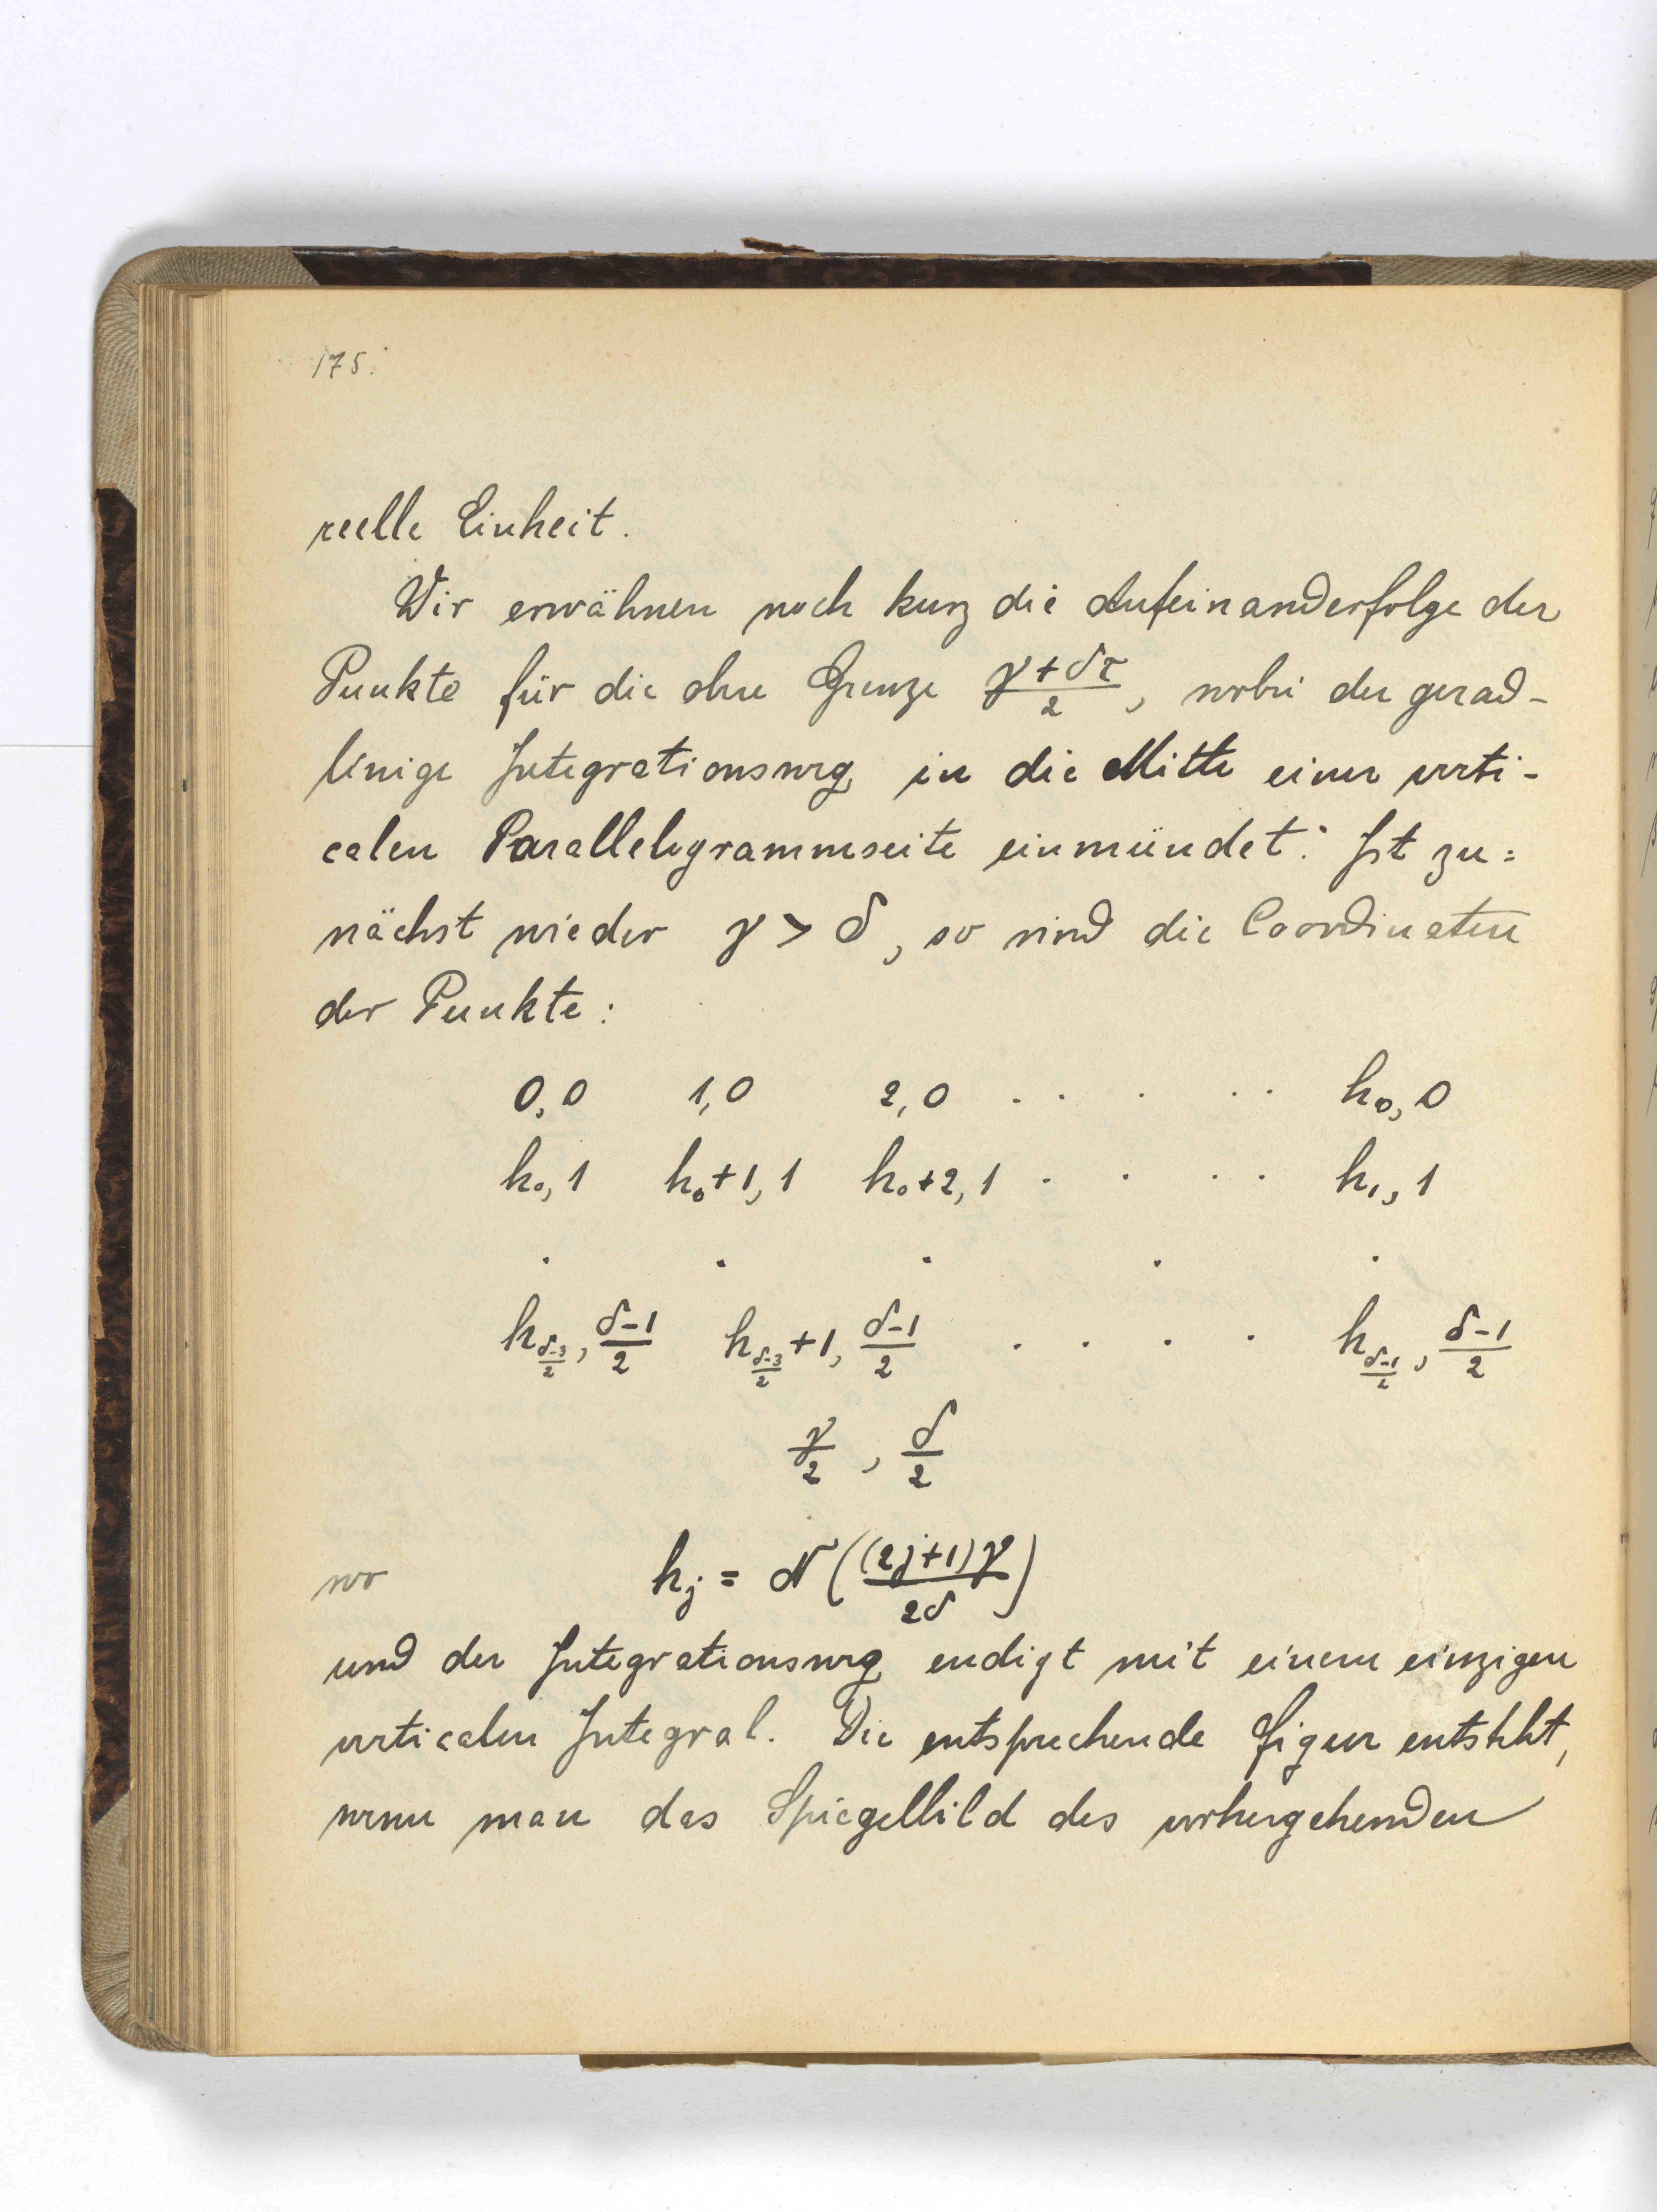 175.
reelle Einheit.
Wir erwähnen noch kurz die Aufeinanderfolge der
Punkte für die obere Grenze (γ+δτ)/2, wobei der gerad-
linige Integrationsweg in die Mitte einer verti-
calen Parallelogrammseite einmündet. Ist zu=
nächst wieder γ > δ, so sind die Coordinaten
der Punkte:
0,0 1,0 2,0 . . . . . h₀,0
h₀,1 h₀+1,1 h₀+2,1 . . . . h₁,1
. . . . .
h_{(δ-3)/2}, (δ-1)/2 h_{(δ-3)/2}+1, (δ-1)/2 . . . . h_{(δ-1)/2}, (δ-1)/2
γ/2, δ/2
wo h_j = N((2j+1)γ/2δ)
und der Integrationsweg endigt mit einem einzigen
verticalen Integral. Die entsprechende Figur entsteht,
wenn man das Spiegelbild des vorhergehenden